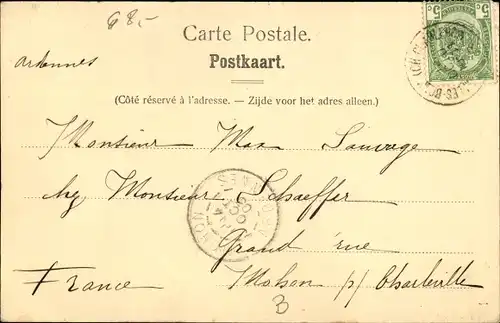 68.-
Carte Postale.
Ardennes
Postkaart.
(Côté réservé à l'adresse. — Zijde voor het adres alleen.)
Monsieur Max Sauvage
chez Monsieur Schaeffer
Grand' rue
France
Mohon p/ Charleville
B